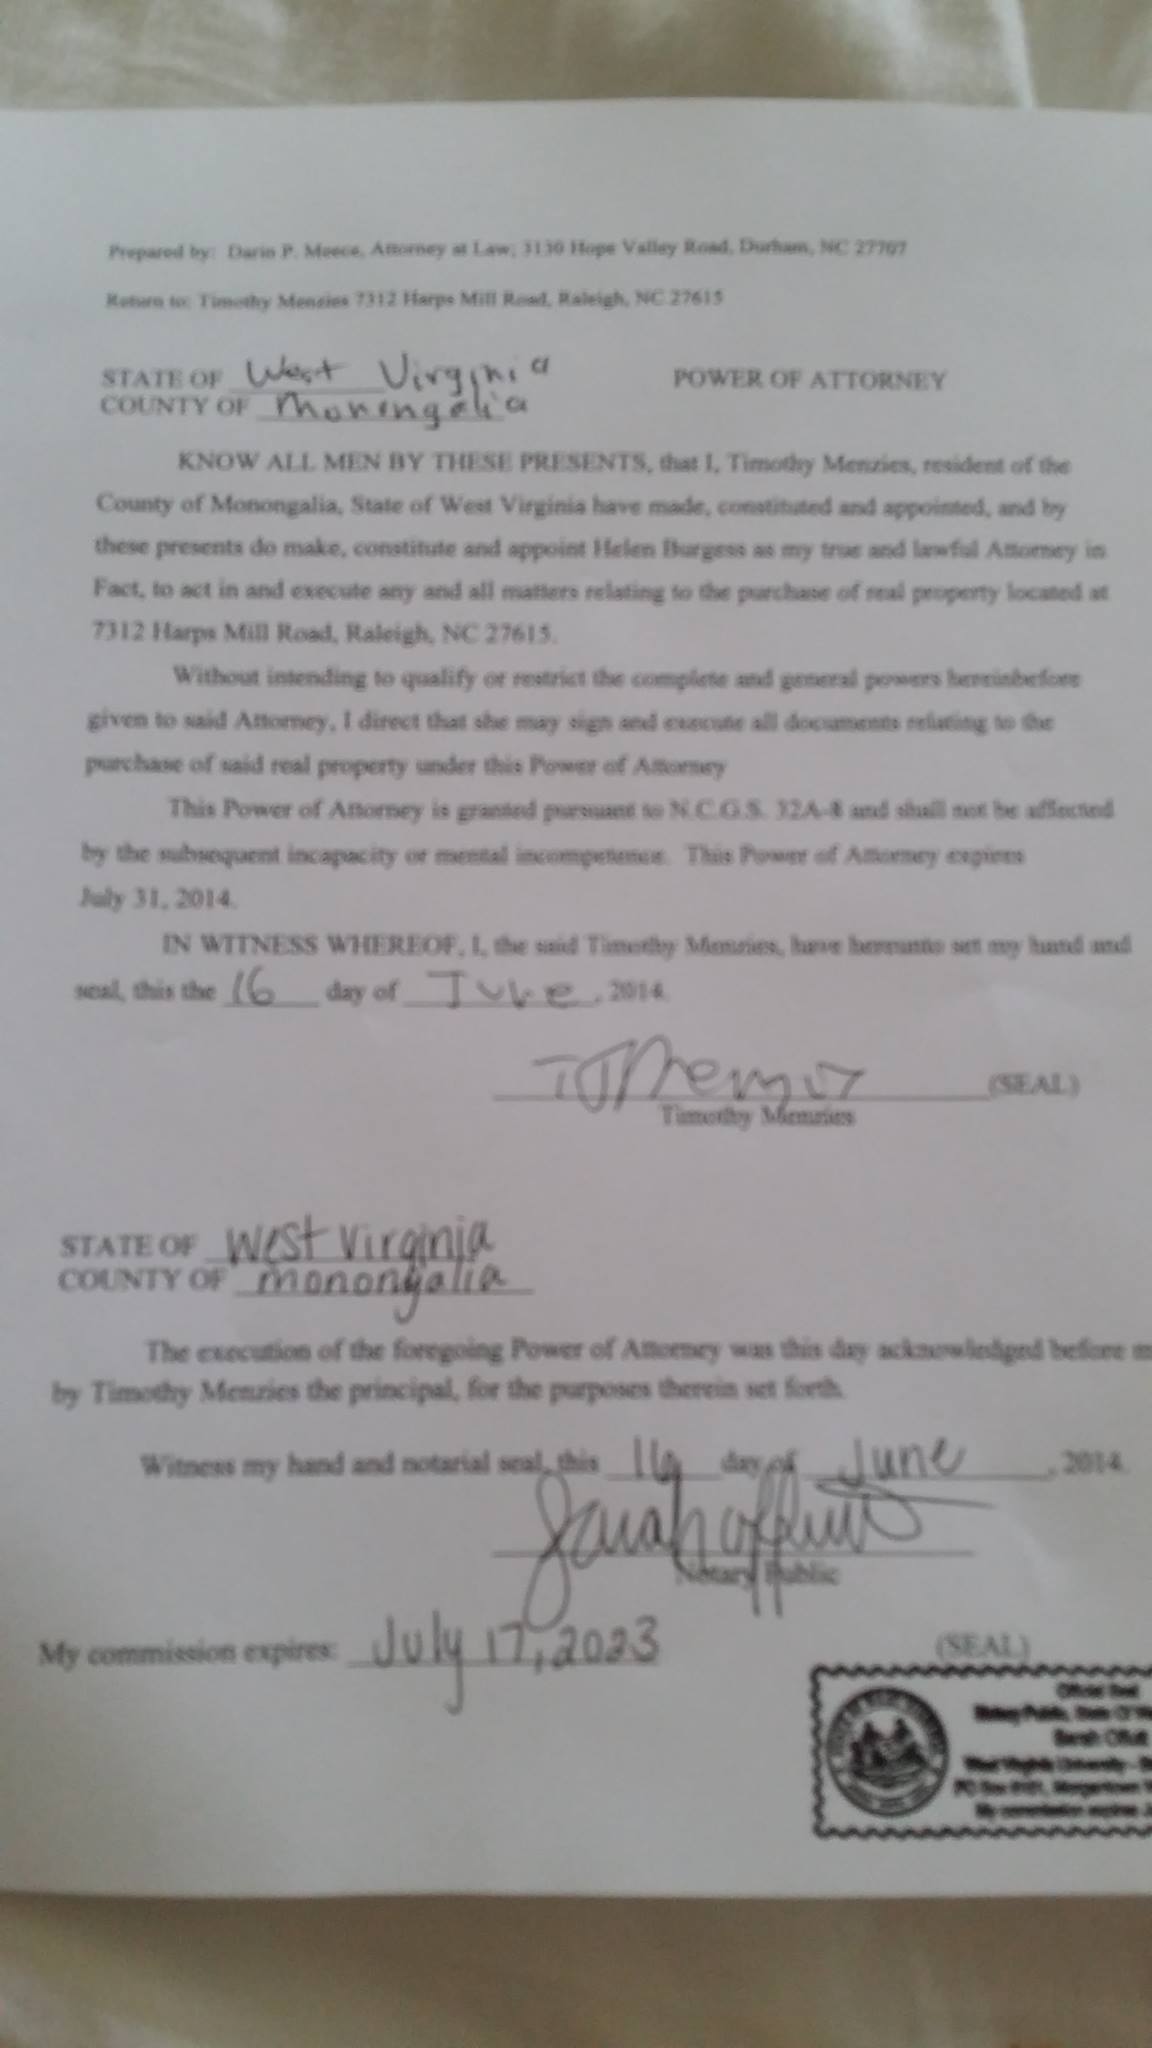 Prepared by: Darin P. Meece, Attorney at Law; 3130 Hope Valley Road, Durham, NC 27707
Return to: Timothy Menzies 7312 Harps Mill Road, Raleigh, NC 27615
STATE OF West Virginia POWER OF ATTORNEY
COUNTY OF Monongalia
KNOW ALL MEN BY THESE PRESENTS, that I, Timothy Menzies, resident of the
County of Monongalia, State of West Virginia have made, constituted and appointed, and by
these presents do make, constitute and appoint Helen Burgess as my true and lawful Attorney in
Fact, to act in and execute any and all matters relating to the purchase of real property located at
7312 Harps Mill Road, Raleigh, NC 27615.
Without intending to qualify or restrict the complete and general powers hereinbefore
given to said Attorney, I direct that she may sign and execute all documents relating to the
purchase of said real property under this Power of Attorney
This Power of Attorney is granted pursuant to N.C.G.S. 32A-8 and shall not be affected
by the subsequent incapacity or mental incompetence. This Power of Attorney expires
July 31, 2014.
IN WITNESS WHEREOF, I, the said Timothy Menzies, have hereunto set my hand and
seal, this the 16 day of June, 2014.
(SEAL)
Timothy Menzies
STATE OF West Virginia
COUNTY OF monongalia
The execution of the foregoing Power of Attorney was this day acknowledged before
by Timothy Menzies the principal, for the purposes therein set forth.
Witness my hand and notarial seal, this 16 day of June, 2014.
Sarah Offutt
Notary Public
My commission expires: July 17, 2023 (SEAL)
Official Seal
Notary Public, State Of
Sarah Offutt
West Virginia University -
PO Box Morgantown
My commission expires